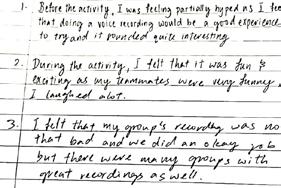 1. Before the activity, I was feeling partially hyped as I fee
that doing a voice recording would be a good experience
to try and it pounded quite interesting
2. During the activity, I felt that it was fun &
exciting as my teammates were very funny,
I laughed alot.
3. I felt that my group's recording was no
that bad and we did an okay job
but there were many groups with
great recordings as well.